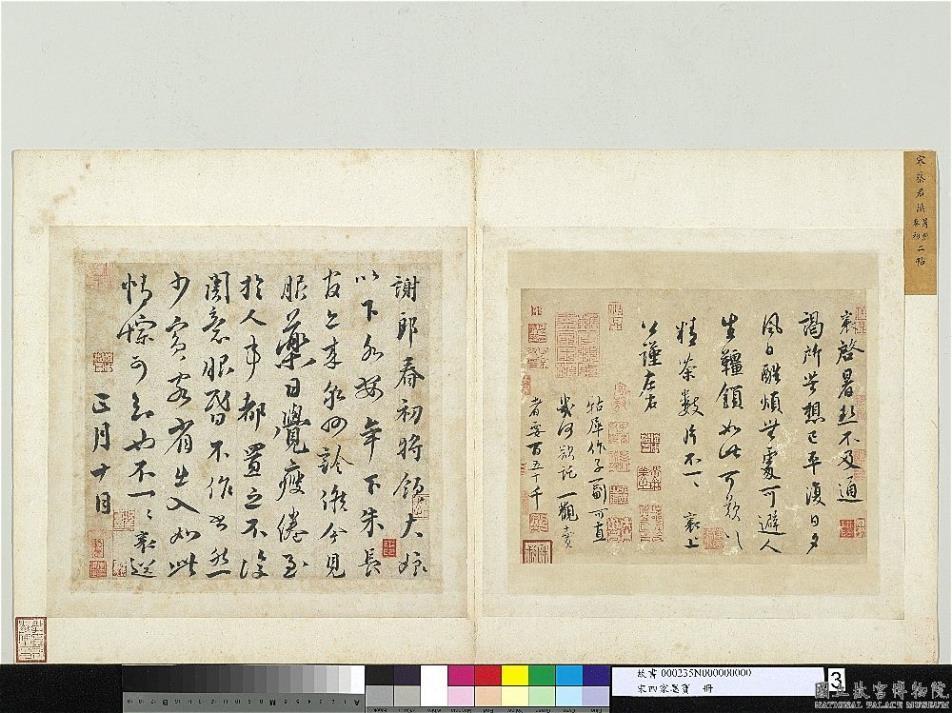 宋蔡君謨暑熱春初二帖
襄啓暑熱不及通
謁所苦想已平復日夕
風日酷煩無處可避人
生韁鎖如此可歎可歎
精茶數片不一一襄上
公謹左右
牯犀作子一副可直
幾何欲託一觀賣
者要百五十千
謝郎春初將領大娘
以下各安年下朱長
官亦來泉州診候今見
服藥日覺瘦倦至
於人事都置之不復
關意眼昏不作書然
少賓客省出入如此
情悰可知也不一一襄送
正月十日
故書 000235N000000000
宋四家墨寶 冊
3
國立故宮博物院
NATIONAL PALACE MUSEUM